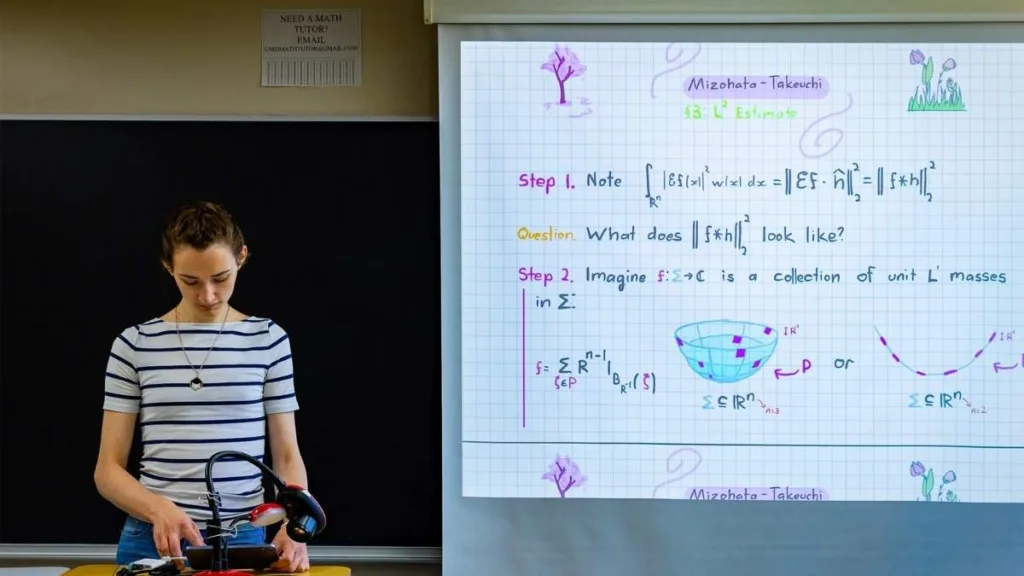 NEED A MATH
TUTOR?
EMAIL
Mizohata - Takeuchi
§3: L² Estimate
Step 1. Note ∫_ℝⁿ |Ef(x)|² w(x) dx = ‖Ef · ĥ‖₂² = ‖f*h‖₂²
Question. What does ‖f*h‖₂² look like?
Step 2. Imagine f: Σ → ℂ is a collection of unit L¹ masses
in Σ:
f = Σ_{ζ∈P} Rⁿ⁻¹ 1_{B_{R⁻¹}(ζ)}
I R⁻¹
P or
I R⁻¹
Σ ⊆ ℝⁿ n=3
Σ ⊆ ℝⁿ n=2
Mizohata - Takeuchi